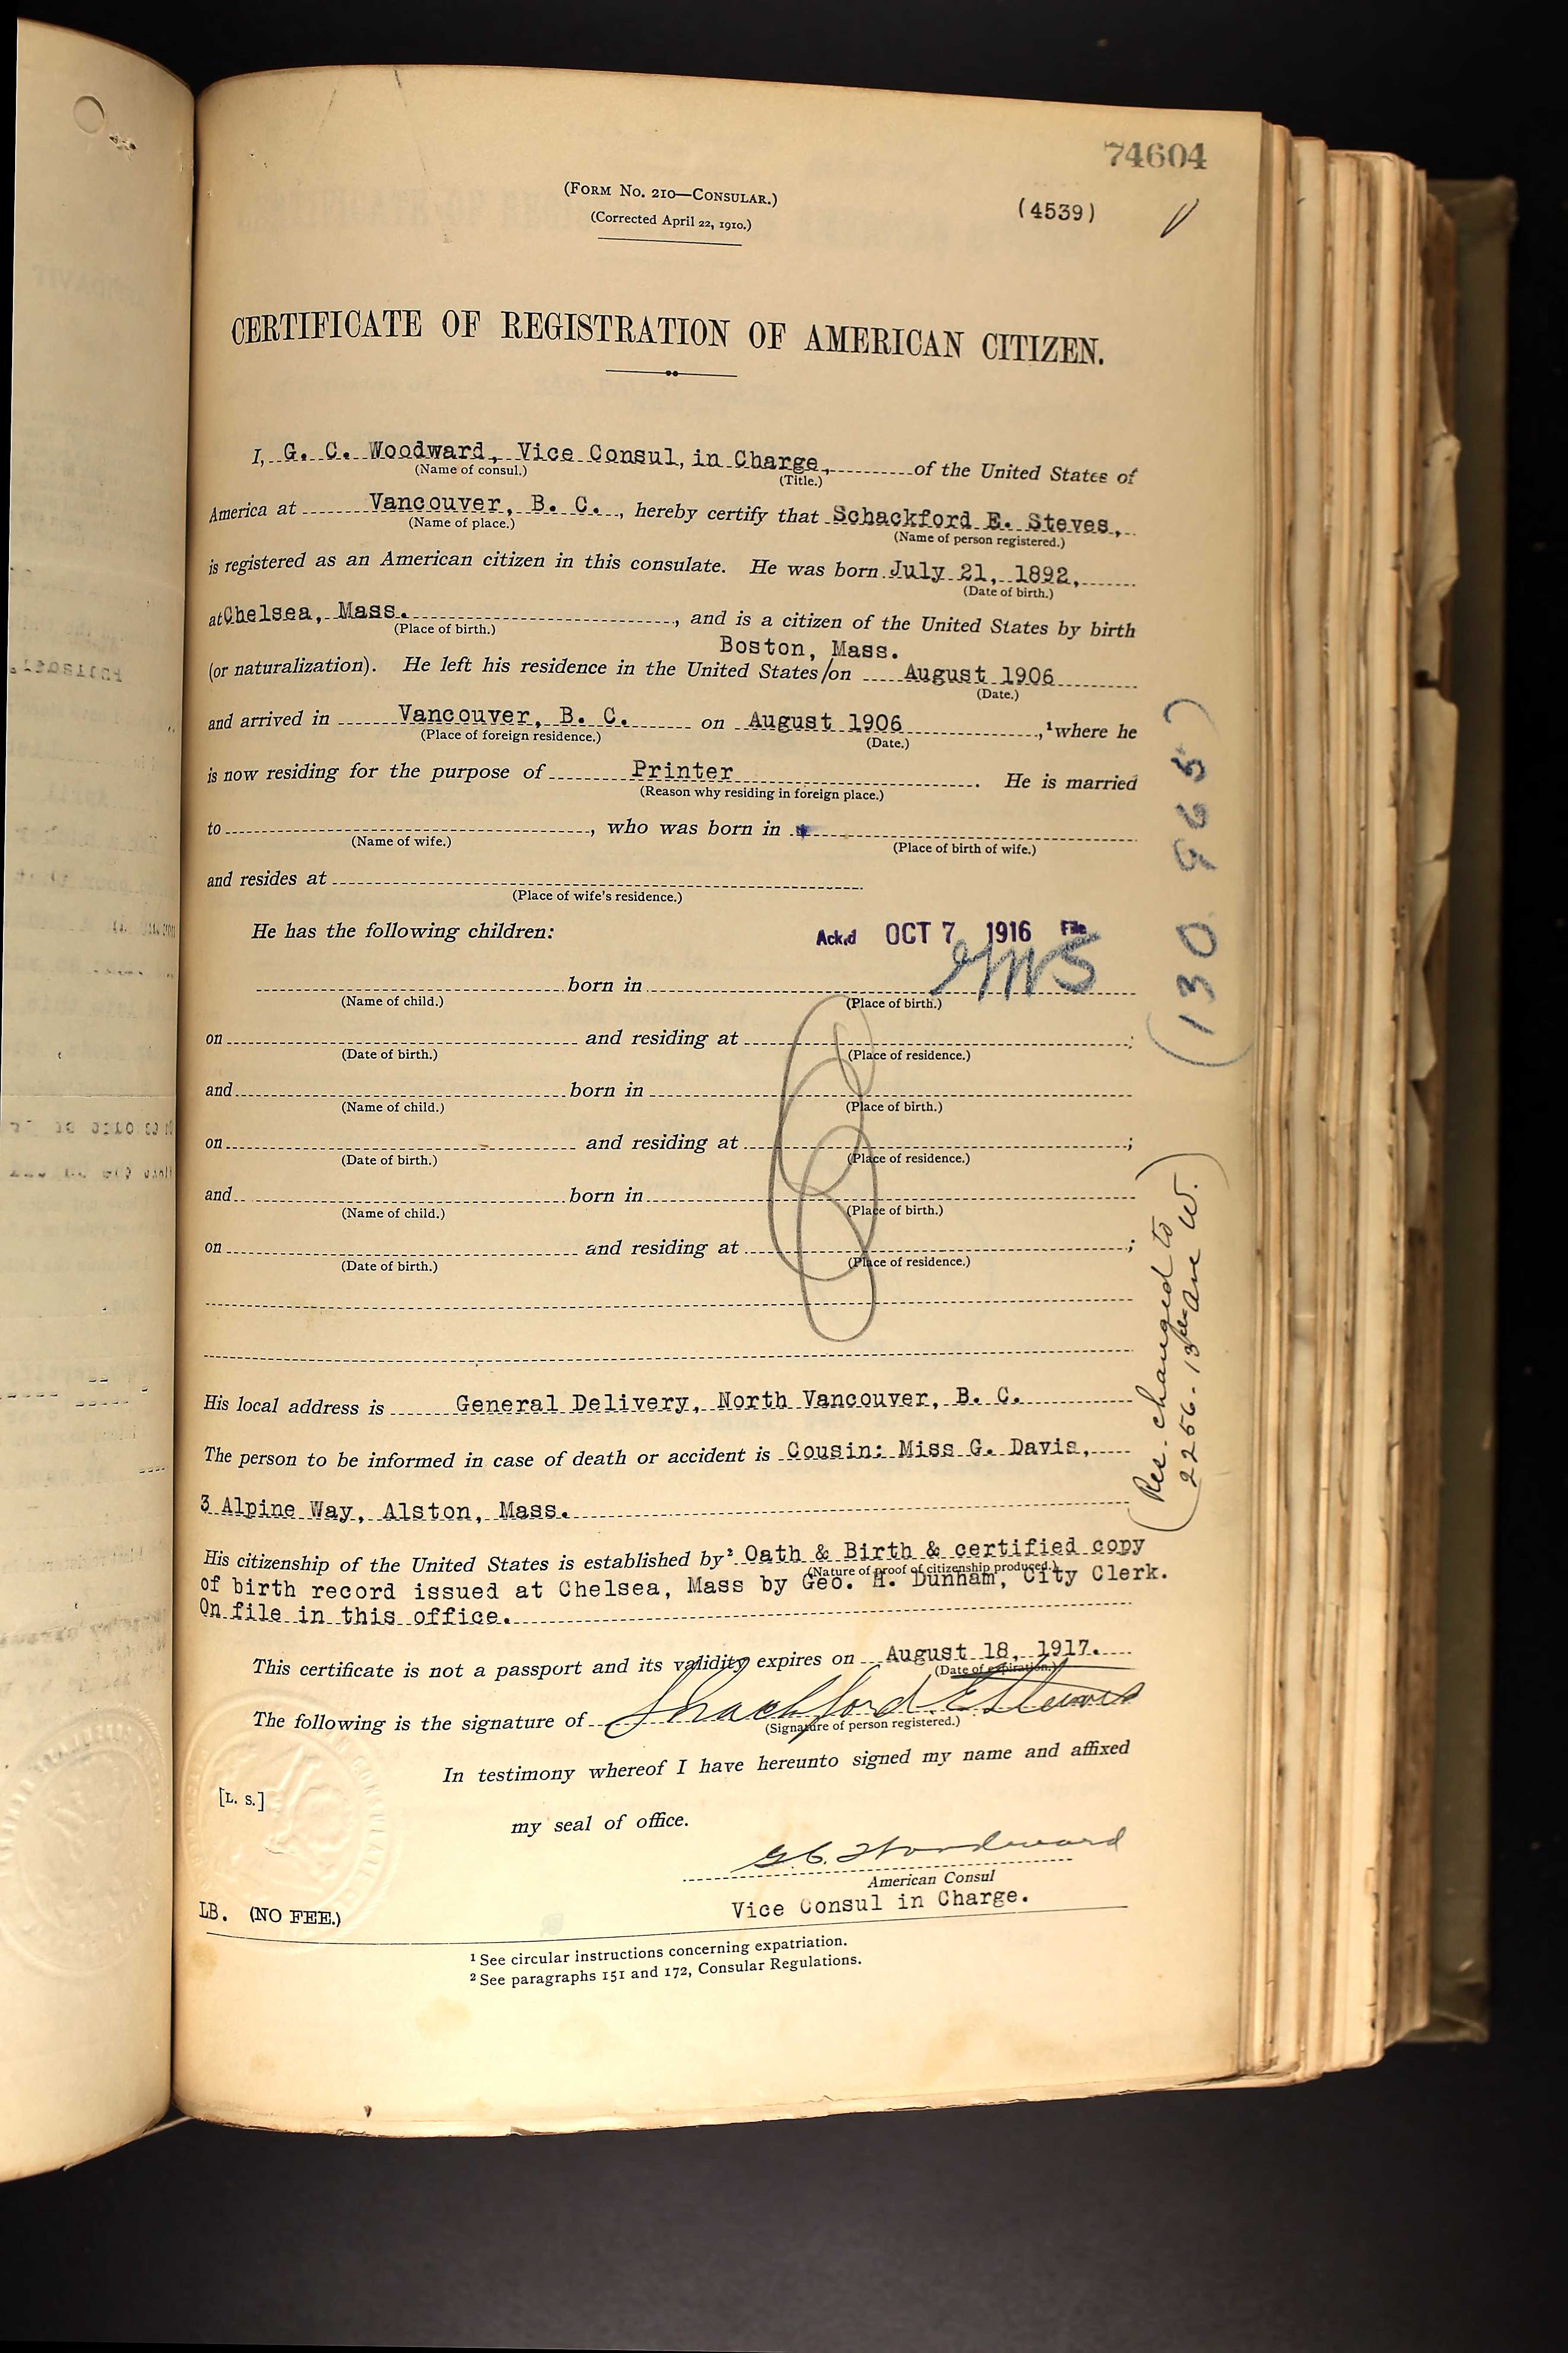 74604
(FORM NO. 210—CONSULAR.)
(4539)
(Corrected April 22, 1910.)
CERTIFICATE OF REGISTRATION OF AMERICAN CITIZEN.
I, G. C. Woodward, Vice Consul, in Charge, of the United States of
(Name of consul.) (Title.)
America at Vancouver, B. C., hereby certify that Schackford E. Steves,
(Name of place.) (Name of person registered.)
is registered as an American citizen in this consulate. He was born July 21, 1892,
(Date of birth.)
at Chelsea, Mass., and is a citizen of the United States by birth
(Place of birth.)
Boston, Mass.
(or naturalization). He left his residence in the United States/on August 1906
(Date.)
and arrived in Vancouver, B. C. on August 1906, ¹where he
(Place of foreign residence.) (Date.)
is now residing for the purpose of Printer. He is married
(Reason why residing in foreign place.)
to, who was born in
(Name of wife.) (Place of birth of wife.)
and resides at
(Place of wife's residence.)
He has the following children:
Ack'd OCT 7 1916 File
born in
(Name of child.) (Place of birth.)
on and residing at ;
(Date of birth.) (Place of residence.)
and born in
(Name of child.) (Place of birth.)
on and residing at ;
(Date of birth.) (Place of residence.)
and born in
(Name of child.) (Place of birth.)
on and residing at ;
(Date of birth.) (Place of residence.)
His local address is General Delivery, North Vancouver, B. C.
The person to be informed in case of death or accident is Cousin: Miss G. Davis,
3 Alpine Way, Alston, Mass.
His citizenship of the United States is established by² Oath & Birth & certified copy
(Nature of proof of citizenship produced.)
of birth record issued at Chelsea, Mass by Geo. H. Dunham, City Clerk.
On file in this office.
This certificate is not a passport and its validity expires on August 18, 1917.
(Date of expiration.)
The following is the signature of Shackford E Steves
(Signature of person registered.)
In testimony whereof I have hereunto signed my name and affixed
[L. S.]
my seal of office.
G. C. Woodward
American Consul
Vice Consul in Charge.
LB. (NO FEE.)
¹ See circular instructions concerning expatriation.
² See paragraphs 151 and 172, Consular Regulations.
(Res. changed to
2256-13th Ave W.)